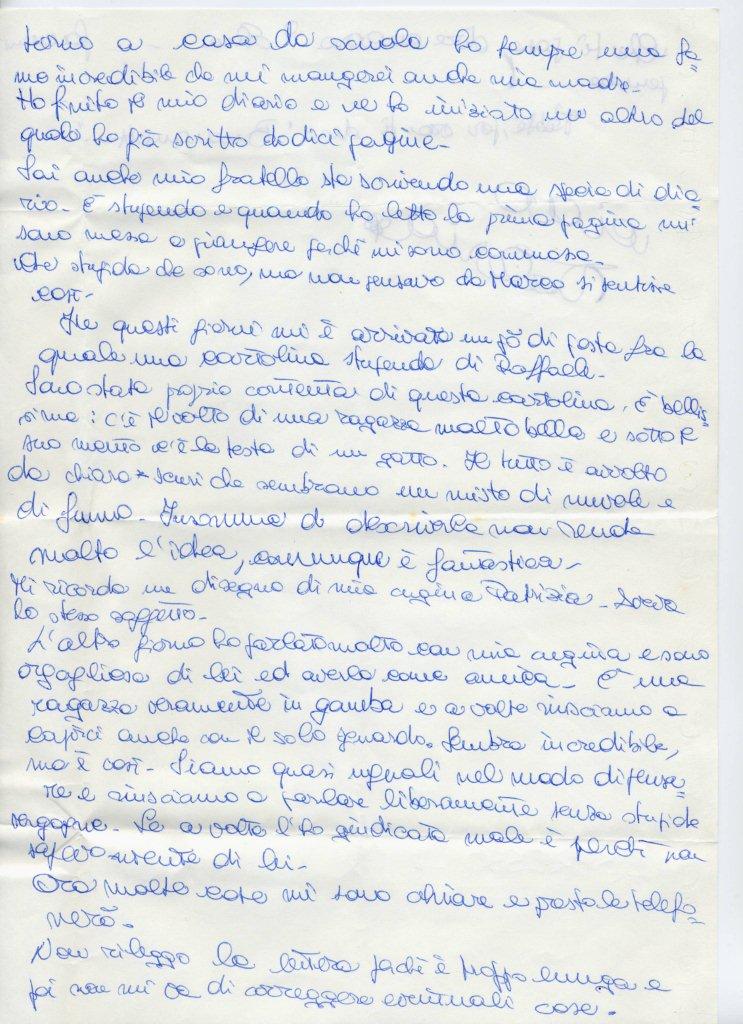 torno a casa da scuola ho sempre una fa=
me incredibile che mi mangerei anche mia madre.
Ho finito il mio diario e ne ho iniziato un altro del
quale ho già scritto dodici pagine.
Sai anche mio fratello sta scrivendo una specie di dia=
rio. È stupendo e quando ho letto la prima pagina mi
sono messa a piangere perché mi sono commossa.
Che stupida che sono, ma non pensavo che Marco si sentisse
così.
In questi giorni mi è arrivata un pò di posta fra la
quale una cartolina stupenda di Raffaele.
Sono stata proprio contenta di questa cartolina. È bellis=
sima: c'è il volto di una ragazza molto bella e sotto il
suo mento c'è la testa di un gatto. Il tutto è avvolto
da chiaro-scuri che sembrano un misto di nuvole e
di fumo. Insomma a descriverla non rende
molto l'idea, comunque è fantastica.
Mi ricorda un disegno di mia cugina Patrizia. Aveva
lo stesso soggetto.
L'altro giorno ho parlato molto con mia cugina e sono
orgogliosa di lei ed averla come amica. È una
ragazza veramente in gamba e a volte riusciamo a
capirci anche con il solo sguardo. Sembra incredibile,
ma è così. Siamo quasi uguali nel modo di pensa=
re e riusciamo a parlare liberamente senza stupide
vergogne. Se a volte l'ho giudicata male è perché non
sapevo niente di lei.
Ora molte cose mi sono chiare e presto le telefo=
nerò.
Non rileggo la lettera perché è troppo lunga e
poi non mi va di correggere eventuali cose.